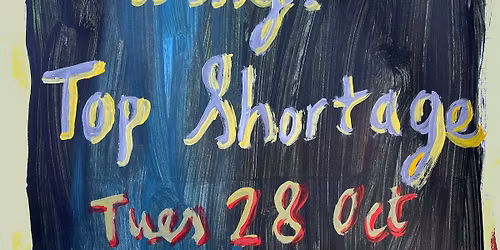 Top Shortage
Tues 28 Oct